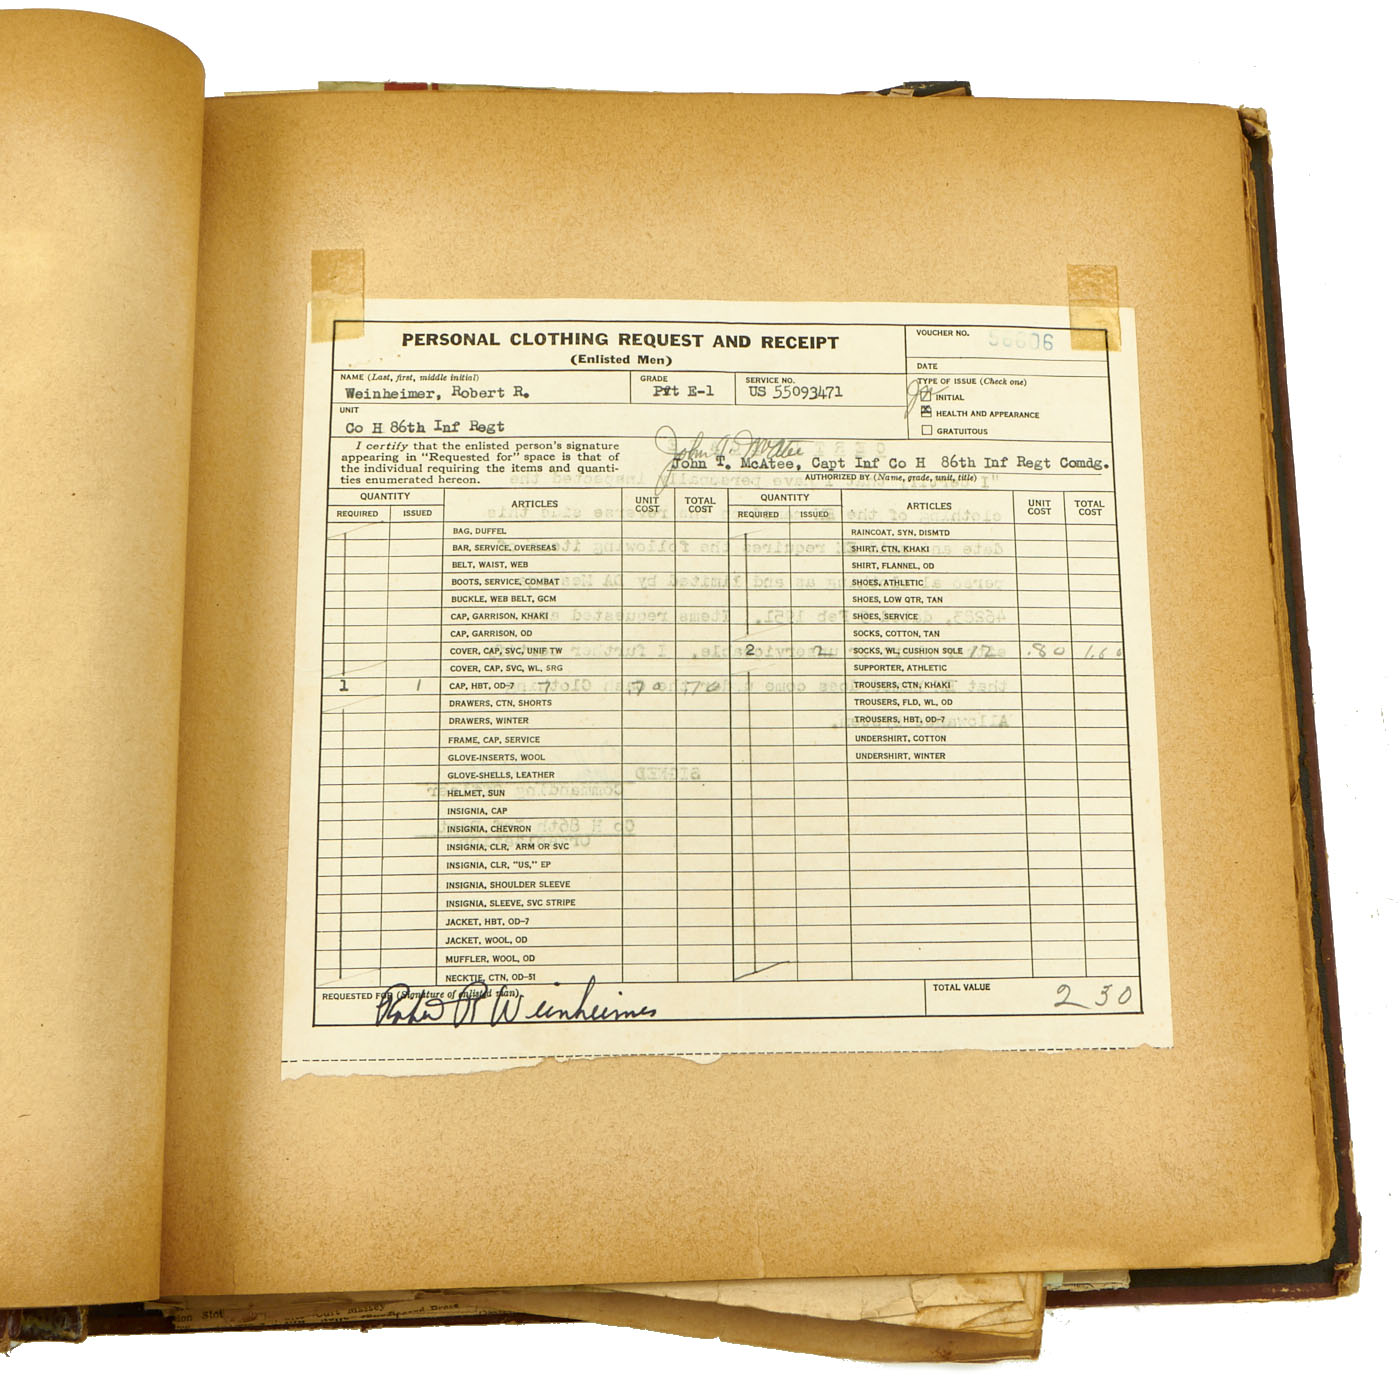 PERSONAL CLOTHING REQUEST AND RECEIPT
(Enlisted Men)
VOUCHER NO.
DATE
NAME (Last, first, middle initial)
Weinheimer, Robert R.
GRADE
Pvt E-1
SERVICE NO.
US 55093471
TYPE OF ISSUE (Check one)
INITIAL
HEALTH AND APPEARANCE
GRATUITOUS
UNIT
Co H 86th Inf Regt
I certify that the enlisted person's signature
appearing in "Requested for" space is that of
the individual requiring the items and quanti-
ties enumerated hereon.
John T. McAtee
John T. McAtee, Capt Inf Co H 86th Inf Regt Comdg.
AUTHORIZED BY (Name, grade, unit, title)
QUANTITY ARTICLES UNIT COST TOTAL COST QUANTITY ARTICLES UNIT COST TOTAL COST
REQUIRED ISSUED REQUIRED ISSUED
BAG, DUFFEL RAINCOAT, SYN, DISMTD
BAR, SERVICE, OVERSEAS SHIRT, CTN, KHAKI
BELT, WAIST, WEB SHIRT, FLANNEL, OD
BOOTS, SERVICE, COMBAT SHOES, ATHLETIC
BUCKLE, WEB BELT, GCM SHOES, LOW QTR, TAN
CAP, GARRISON, KHAKI SHOES, SERVICE
CAP, GARRISON, OD SOCKS, COTTON, TAN
COVER, CAP, SVC, UNIF TW 2 2 SOCKS, WL, CUSHION SOLE 12 .80 1.60
COVER, CAP, SVC, WL, SRG SUPPORTER, ATHLETIC
1 1 CAP, HBT, OD-7 7 70 70 TROUSERS, CTN, KHAKI
DRAWERS, CTN, SHORTS TROUSERS, FLD, WL, OD
DRAWERS, WINTER TROUSERS, HBT, OD-7
FRAME, CAP, SERVICE UNDERSHIRT, COTTON
GLOVE-INSERTS, WOOL UNDERSHIRT, WINTER
GLOVE-SHELLS, LEATHER
HELMET, SUN
INSIGNIA, CAP
INSIGNIA, CHEVRON
INSIGNIA, CLR, ARM OR SVC
INSIGNIA, CLR, "US," EP
INSIGNIA, SHOULDER SLEEVE
INSIGNIA, SLEEVE, SVC STRIPE
JACKET, HBT, OD-7
JACKET, WOOL, OD
MUFFLER, WOOL, OD
NECKTIE, CTN, OD-51
REQUESTED FOR (Signature of enlisted man)
Robert R Weinheimer
TOTAL VALUE
2 30